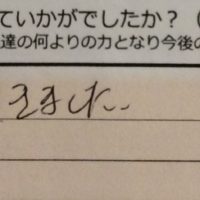 ていかがでしたか？（
達の何よりの力となり今後の
きました。